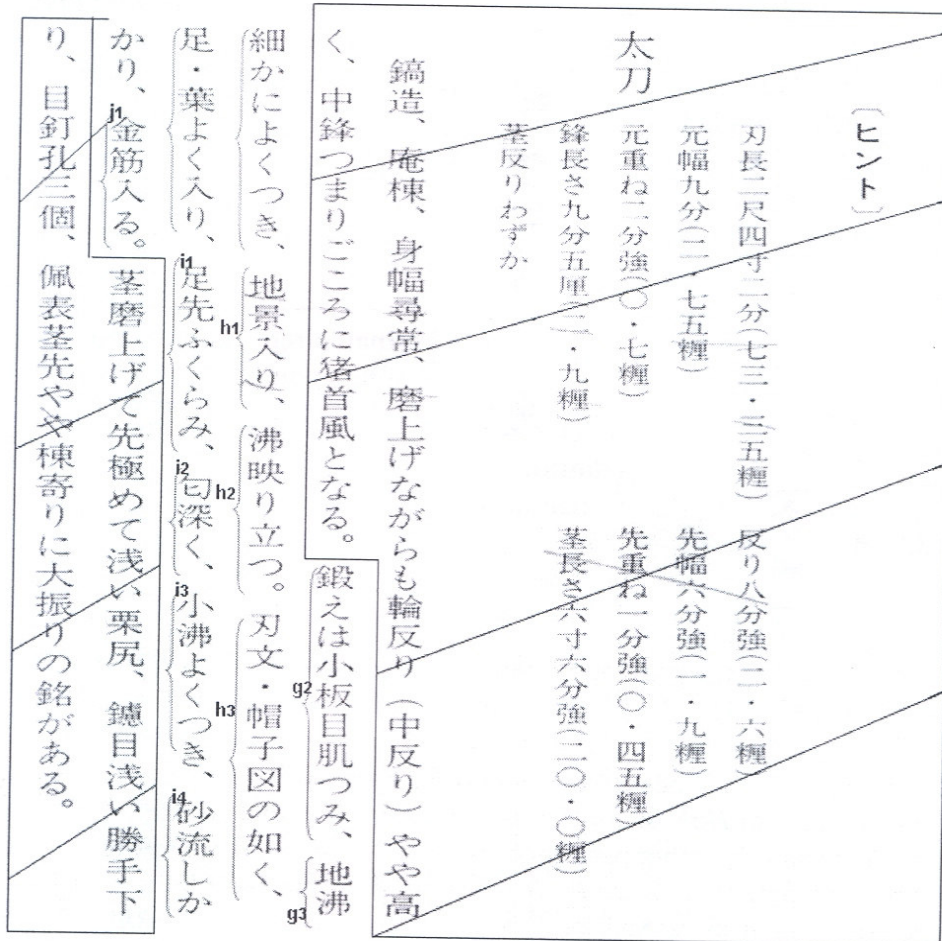 〔ヒント〕
刃長二尺四寸二分(七三・三五糎) 反り八分強(二・六糎)
元幅九分(二・七五糎) 先幅六分強(一・九糎)
太刀 元重ね二分強(〇・七糎) 先重ね一分強(〇・四五糎)
鋒長さ九分五厘(二・九糎) 茎長さ六寸六分強(二〇・〇糎)
茎反りわずか
鎬造、庵棟、身幅尋常、磨上げながらも輪反り(中反り)やや高
く、中鋒つまりごころに猪首風となる。鍛えは小板目肌つみ、地沸
g2
g3
細かによくつき、地景入り、沸映り立つ。刃文・帽子図の如く、
h1
h2
h3
足・葉よく入り、足先ふくらみ、匂深く、小沸よくつき、砂流しか
i1
i2
i3
i4
かり、金筋入る。茎磨上げて先極めて浅い栗尻、鑢目浅い勝手下
j1
り、目釘孔三個、佩表茎先やや棟寄りに大振りの銘がある。